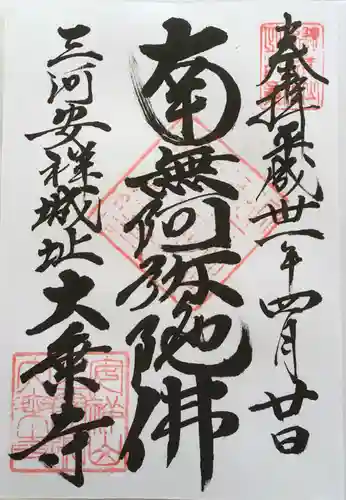 奉拝 平成卅一年四月廿日
南無阿弥陀佛
三河安祥城址 大乗寺